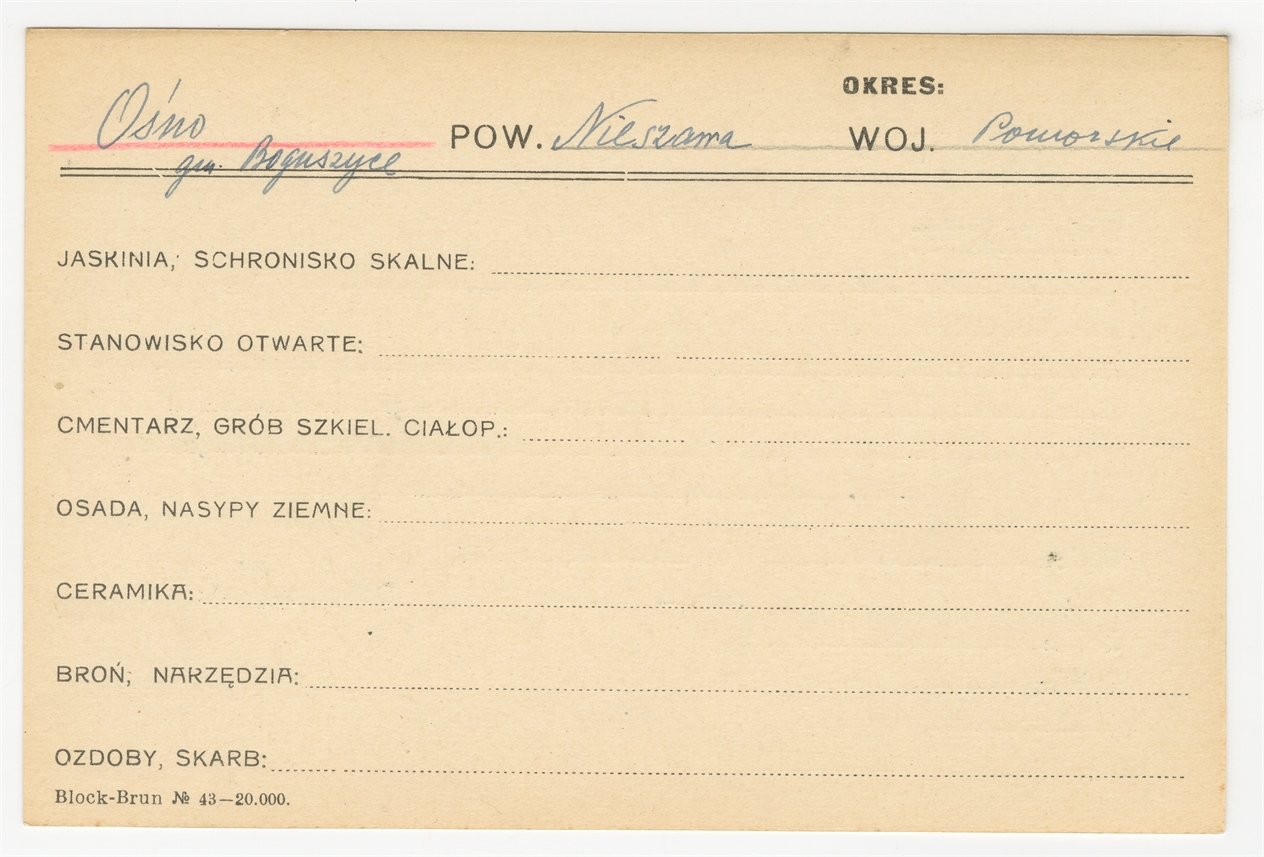 OKRES:
Ośno POW. Nieszawa WOJ. Pomorskie
gm. Boguszyce
JASKINIA, SCHRONISKO SKALNE:
STANOWISKO OTWARTE:
CMENTARZ, GRÓB SZKIEL. CIAŁOP.:
OSADA, NASYPY ZIEMNE:
CERAMIKA:
BROŃ, NARZĘDZIA:
OZDOBY, SKARB:
Block-Brun № 43—20.000.